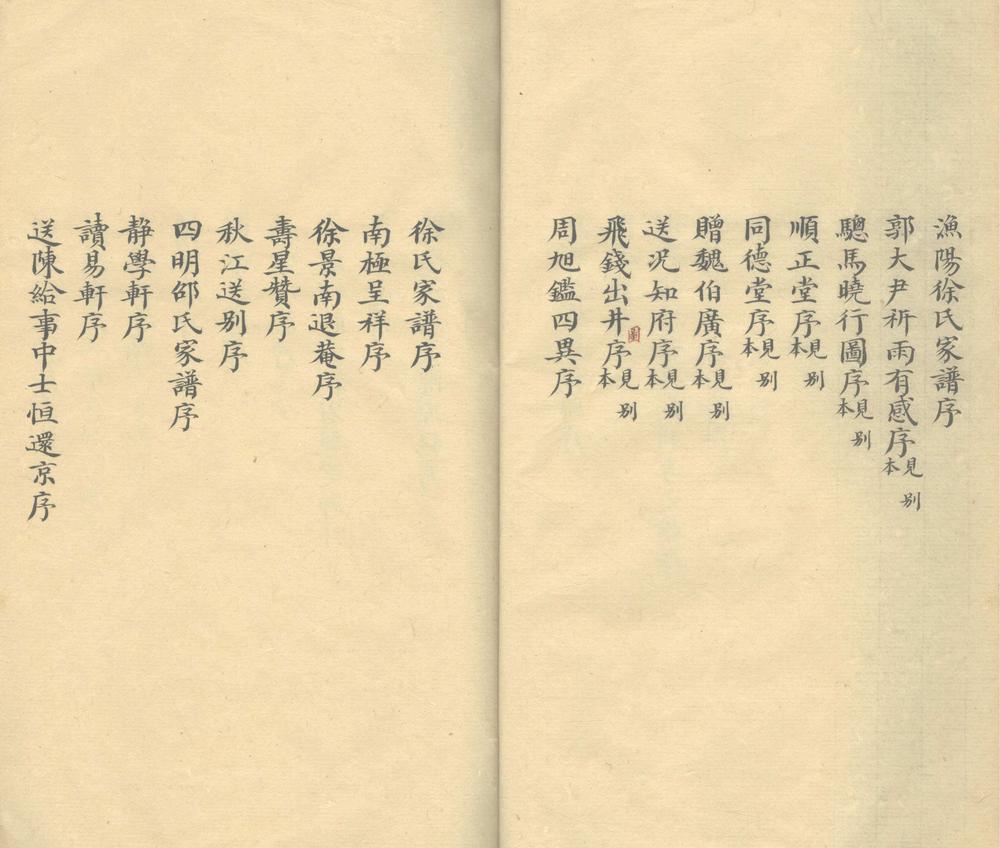 漁陽徐氏家譜序
郭大尹祈雨有感序見別本
驄馬曉行圖序見別本
順正堂序見別本
同德堂序見別本
贈魏伯廣序見別本
送况知府序見別本
飛錢出井圖序見別本
周旭鑑四異序
徐氏家譜序
南極呈祥序
徐景南退菴序
壽星贊序
秋江送别序
四明邵氏家譜序
静學軒序
讀易軒序
送陳給事中士恒還京序